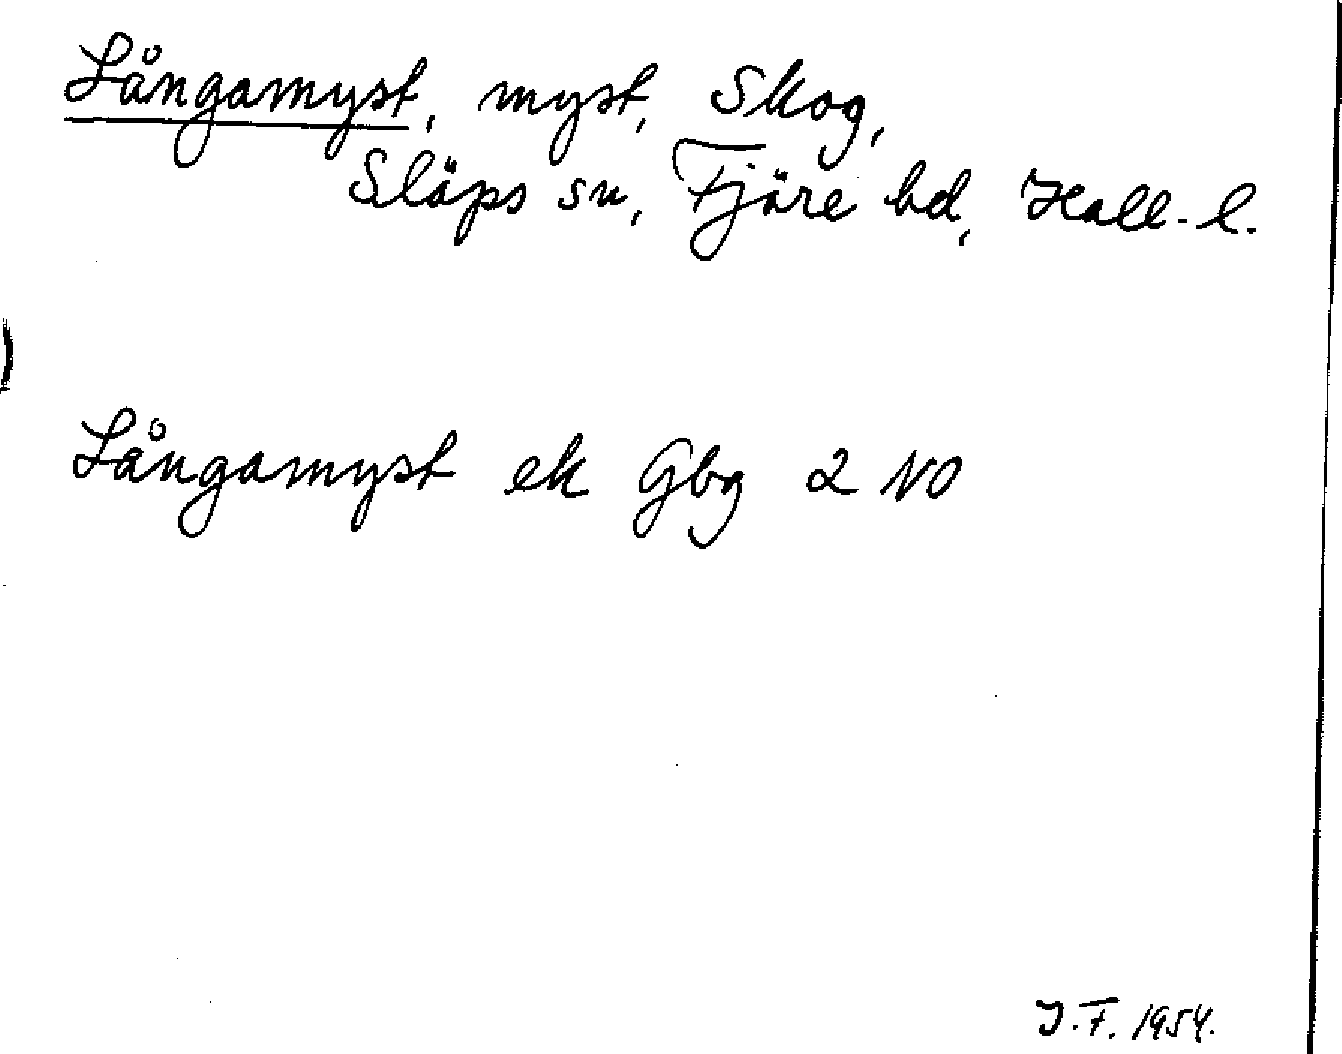 Långamyst, myst, Skog,
Släps sn, Fjäre hd, Hall. l.
Långamyst ek Gbg 2 NO
J.F. 1954.